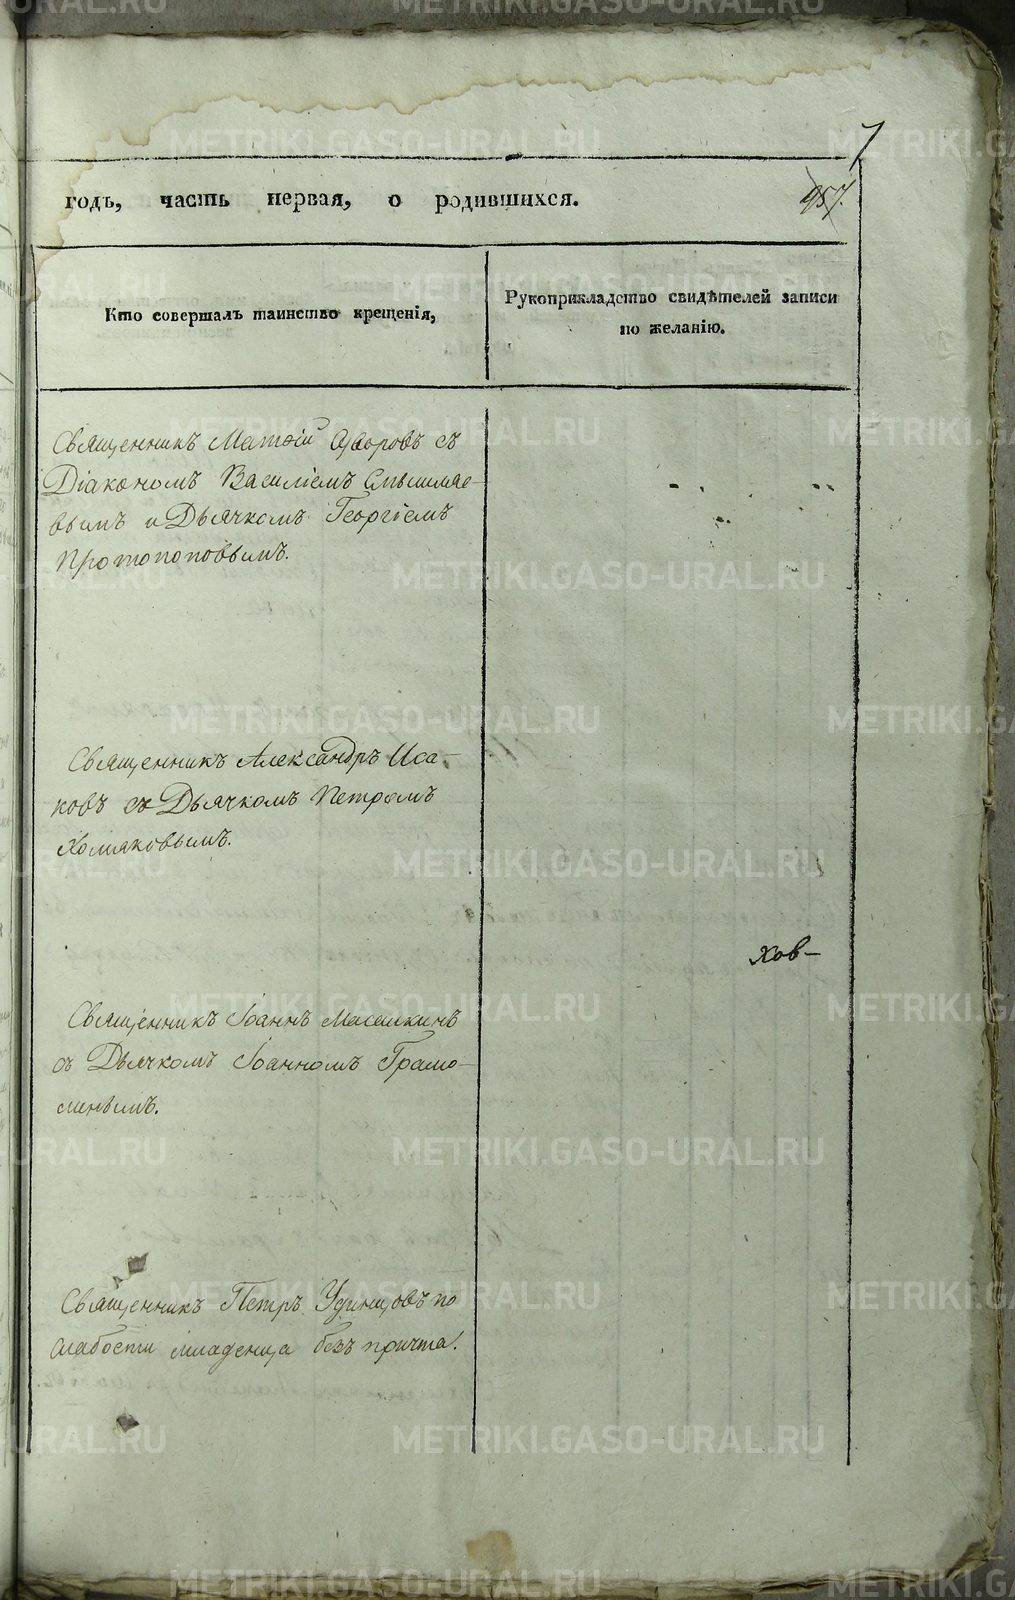 7
годъ, часть первая, о родившихся.
957.
Кто совершалъ таинство крещенія,
Рукоприкладство свидѣтелей записи
по желанію.
Священникъ Матѳій съ
Діакономъ Василіемъ
вымъ и Дьячкомъ Георгіемъ
Протопоповымъ.
Священникъ Александръ Иса-
ковъ съ Дьячкомъ Петромъ
Хомяковымъ.
хов-
Священникъ Іоаннъ
съ Дьячкомъ Іоанномъ
Священникъ Петръ Удинцовъ по
слабости младенца безъ причта.
METRIKI.GASO-URAL.RU